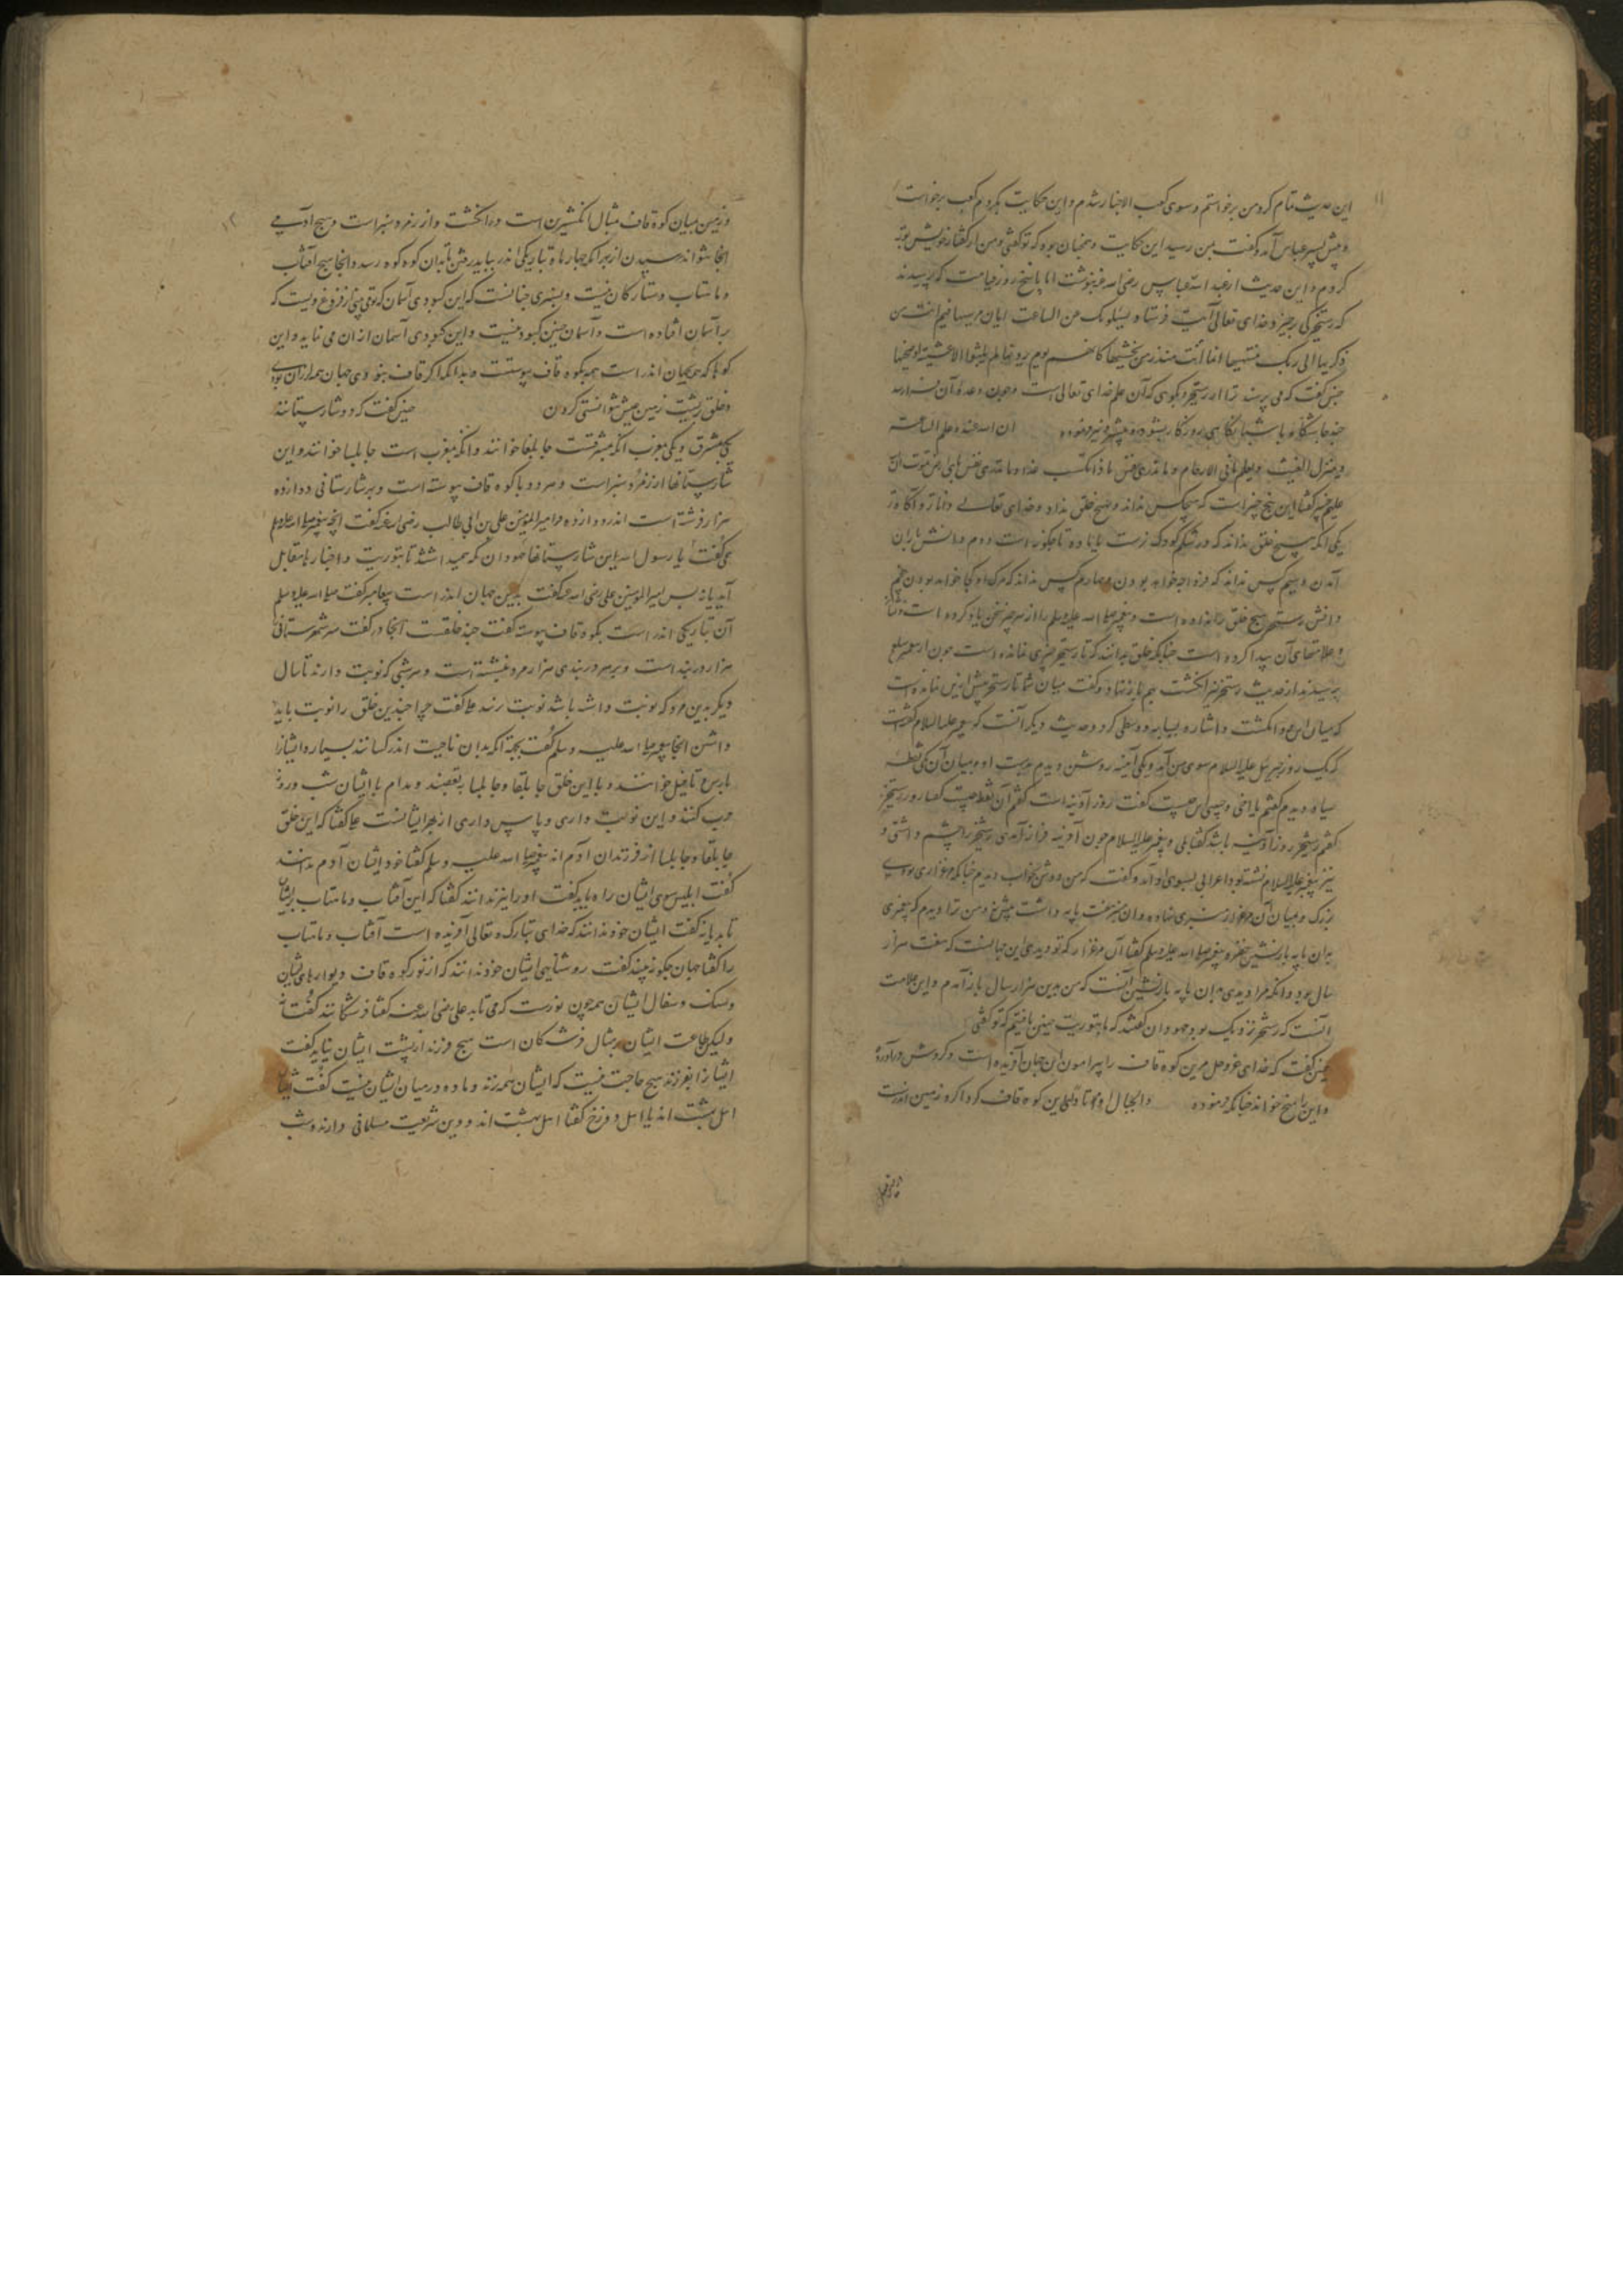 ۱۱
این حدیث تمام کرد من برخواستم و سوی کعب الاحبار شدم و این حکایت بکردم کعب برخواست
و پیش پسر عباس آمد و گفت بمن رسید این حکایت و همچنان بوده که تو گفتی و من از گفتار خویش توبه
کردم و این حدیث از عبد الله عباس رضی الله عنه نوشت اما پاسخ روز قیامت که پرسیدند
که رستخیز کی برخیزد خدای تعالی آیت فرستاد یسئلونک عن الساعت ایان مرسیها فیم انت من
ذکریها الی ربک منتهیها انما انت منذر من یخشیها کانهم یوم یرونها لم یلبثوا الا عشیة او ضحیها
چنین گفت که می پرسند ترا از رستخیز بگوی که آن علم خدای تعالی است و چون وعدهٔ آن فراز رسد
ان الله عنده علم الساعة
و ینزل الغیث و یعلم ما فی الارحام و ما تدری نفس ماذا تکسب غدا و ما تدری نفس بای ارض تموت ان الله
علیم خبیر گفتا این پنج چیز است که هیچکس نداند و هیچ خلق نداند و خدای تعالی داناتر و آگاه تر
یکی آنکه هیچ خلق نداند که در شکم کودک نرست یا ماده تا چگونه است دوم دانش باران
آمدن و سیم کس نداند که فردا چه خواهد بودن و چهارم کس نداند که مرگ او کجا خواهد بودن پنجم
دانش رستخیز هیچ خلق را نداده است و پیغمبر صلی الله علیه وسلم را از هر چیز سخن یاد کرده است
و علامتهای آن پیدا کرده است چنانکه خلق بدانند که تا رستخیز چیزی نمانده است چون از پیغمبر صلعم
پرسیدند از حدیث رستخیز انگشت بهم باز نهاد و گفت میان شما تا رستخیز بیش ازین نمانده است
که میان این دو انگشت و اشاره بسبابه و وسطی کرد و حدیث دیگر آنست که پیغمبر علیه السلام گفت
که یک روز جبرئیل علیه السلام سوی من آمد و یکی آینه روشن دیدم بدست او و میان آن یکی نقطه
سیاه دیدم گفتم یا اخی این چیست گفت روز آدینه است گفتم آن نقطه چیست گفتا روز رستخیز
گفتم رستخیز روز آدینه باشد گفتا بلی و پیغمبر علیه السلام چون آدینه فراز آمدی رستخیز را چشم داشتی و
نیز پیغمبر علیه السلام نشسته بود اعرابی بسوی او آمد و گفت که من دوش بخواب دیدم چنانکه مرغزاری بودی
بزرگ و میان آن مرغزار منبری نهاده و آن منبر هفت پایه داشت و من ترا دیدم که پیغمبری
بران پایه بازنشین پیغمبر صلی الله علیه وسلم گفتا آن مرغزار که تو دیدی این جهانست که هفت هزار
سال بود و آنکه مرا دیدی بدان پایه بازنشین آنست که من بدین هزار سال بازآمدم و این علامت
آنست که رستخیز نزدیک بود و جهودان گفتند که ما بتوریت چنین یافتیم که تو گفتی
چنین گفت که خدای عز و جل مرین کوه قاف را پیرامون این جهان آفریده است و گردش در آورده
و این را میخ خواند چنانکه فرموده والجبال اوتادا ولیکن کوه قاف گرداگرد زمین اندرست
۱۲
و زمین میان کوه قاف مثال انگشترین است در انگشت و از زمرد سبز است و هیچ آدمی
آنجا نتواند رسیدن از بهر آنکه چهار ماه تاریکی اندر بباید رفتن تا بدان کوه رسد و آنجا هیچ آفتاب
و ماهتاب و ستارگان نیست و بسبزی چنانست که این کبودی آسمان که تو می بینی از فروغ ویست که
بر آسمان افتاده است و آسمان چنین کبود نیست و این کبودی آسمان از آن می نماید و این
کوهها که بجهان اندر است همه بکوه قاف پیوستست و بدانکه اگر قاف نبودی جهان همه لرزان بودی
و خلق بر پشت زمین عیش نتوانستی کردن چنین گفت که دو شارستانند
یکی بمشرق و یکی بمغرب آنکه بمشرقست جابلقا خوانند و آنکه بمغرب است جابلسا خوانند و این
شارستانها از زمرد سبز است و هر دو با کوه قاف پیوسته است و هر شارستانی دوازده
هزار فرشته است اندر دوازده امیر المؤمنین علی بن ابی طالب رضی الله عنه گفت آنچه پیغمبر صلی الله علیه وسلم
همی گفت یا رسول الله این شارستانها جهودان که می شد تا بتوریت و اخبار ما مقابل
آید یا نه پس امیر المؤمنین علی رضی الله عنه گفت بدین جهان اندر است پیغامبر گفت صلی الله علیه وسلم
آن تاریکی اندر است بکوه قاف پیوست گفت چند خلقست آنجا در گفت هر شهرستانی
هزار دربند است و بر هر دربندی هزار مرد نشسته است و هر شبی که نوبت دارند تا سال
دیگر بدین مرد که نوبت داشته باشد نوبت نرسد علی گفت چرا چندین خلق را نوبت باید
داشتن آنجا پیغمبر صلی الله علیه وسلم گفت بجهة آنکه بدان ناحیت اندر کسانند بسیار و ایشانرا
مارس و تافیل خوانند و با این خلق جابلقا و جابلسا بتعصبند و مدام با ایشان شب و روز
حرب کنند و این نوبت داری و پاس داری از بهر ایشانست علی گفتا که این خلق
جابلقا و جابلسا از فرزندان آدم اند پیغمبر صلی الله علیه وسلم گفتا خود ایشان آدم ندانند
گفت ابلیس سوی ایشان راه یابد گفت او را نیز ندانند گفتا که این آفتاب و ماهتاب بریشان
تابد یا نه گفت ایشان خود ندانند که خدای تبارک و تعالی آفریده است آفتاب و ماهتاب
را گفتا جهان چگونه بینند گفت روشنایی ایشان خود ندانند که از نور کوه قاف و دیوارهای ایشان
و سنگ و سفال ایشان همه چون نورست که می تابد علی رضی الله عنه گفتا فرشتگانند گفت نه
ولیکن طاعت ایشان بر مثال فرشتگان است هیچ فرزند از پشت ایشان نیاید گفت
ایشانرا بفرزند هیچ حاجت نیست که ایشان همه نرند و ماده در میان ایشان نیست گفت ایشان
اهل بهشت اند یا اهل دوزخ گفتا اهل بهشت اند و دین شریعت مسلمانی دارند و شب